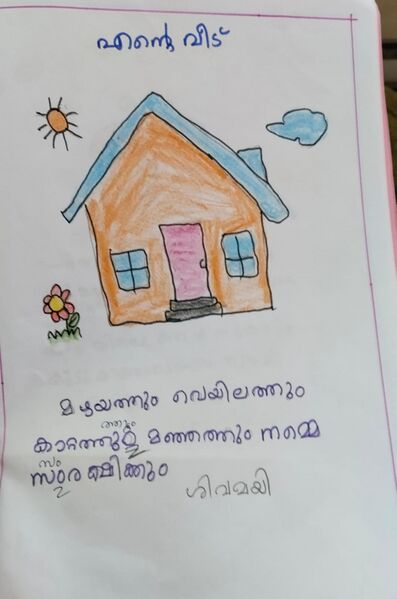 എന്റെ വീട്
മഴയത്തും വെയിലത്തും
കാറ്റത്തും മഞ്ഞത്തും നമ്മെ
സംരക്ഷിക്കും
ശിവമയി